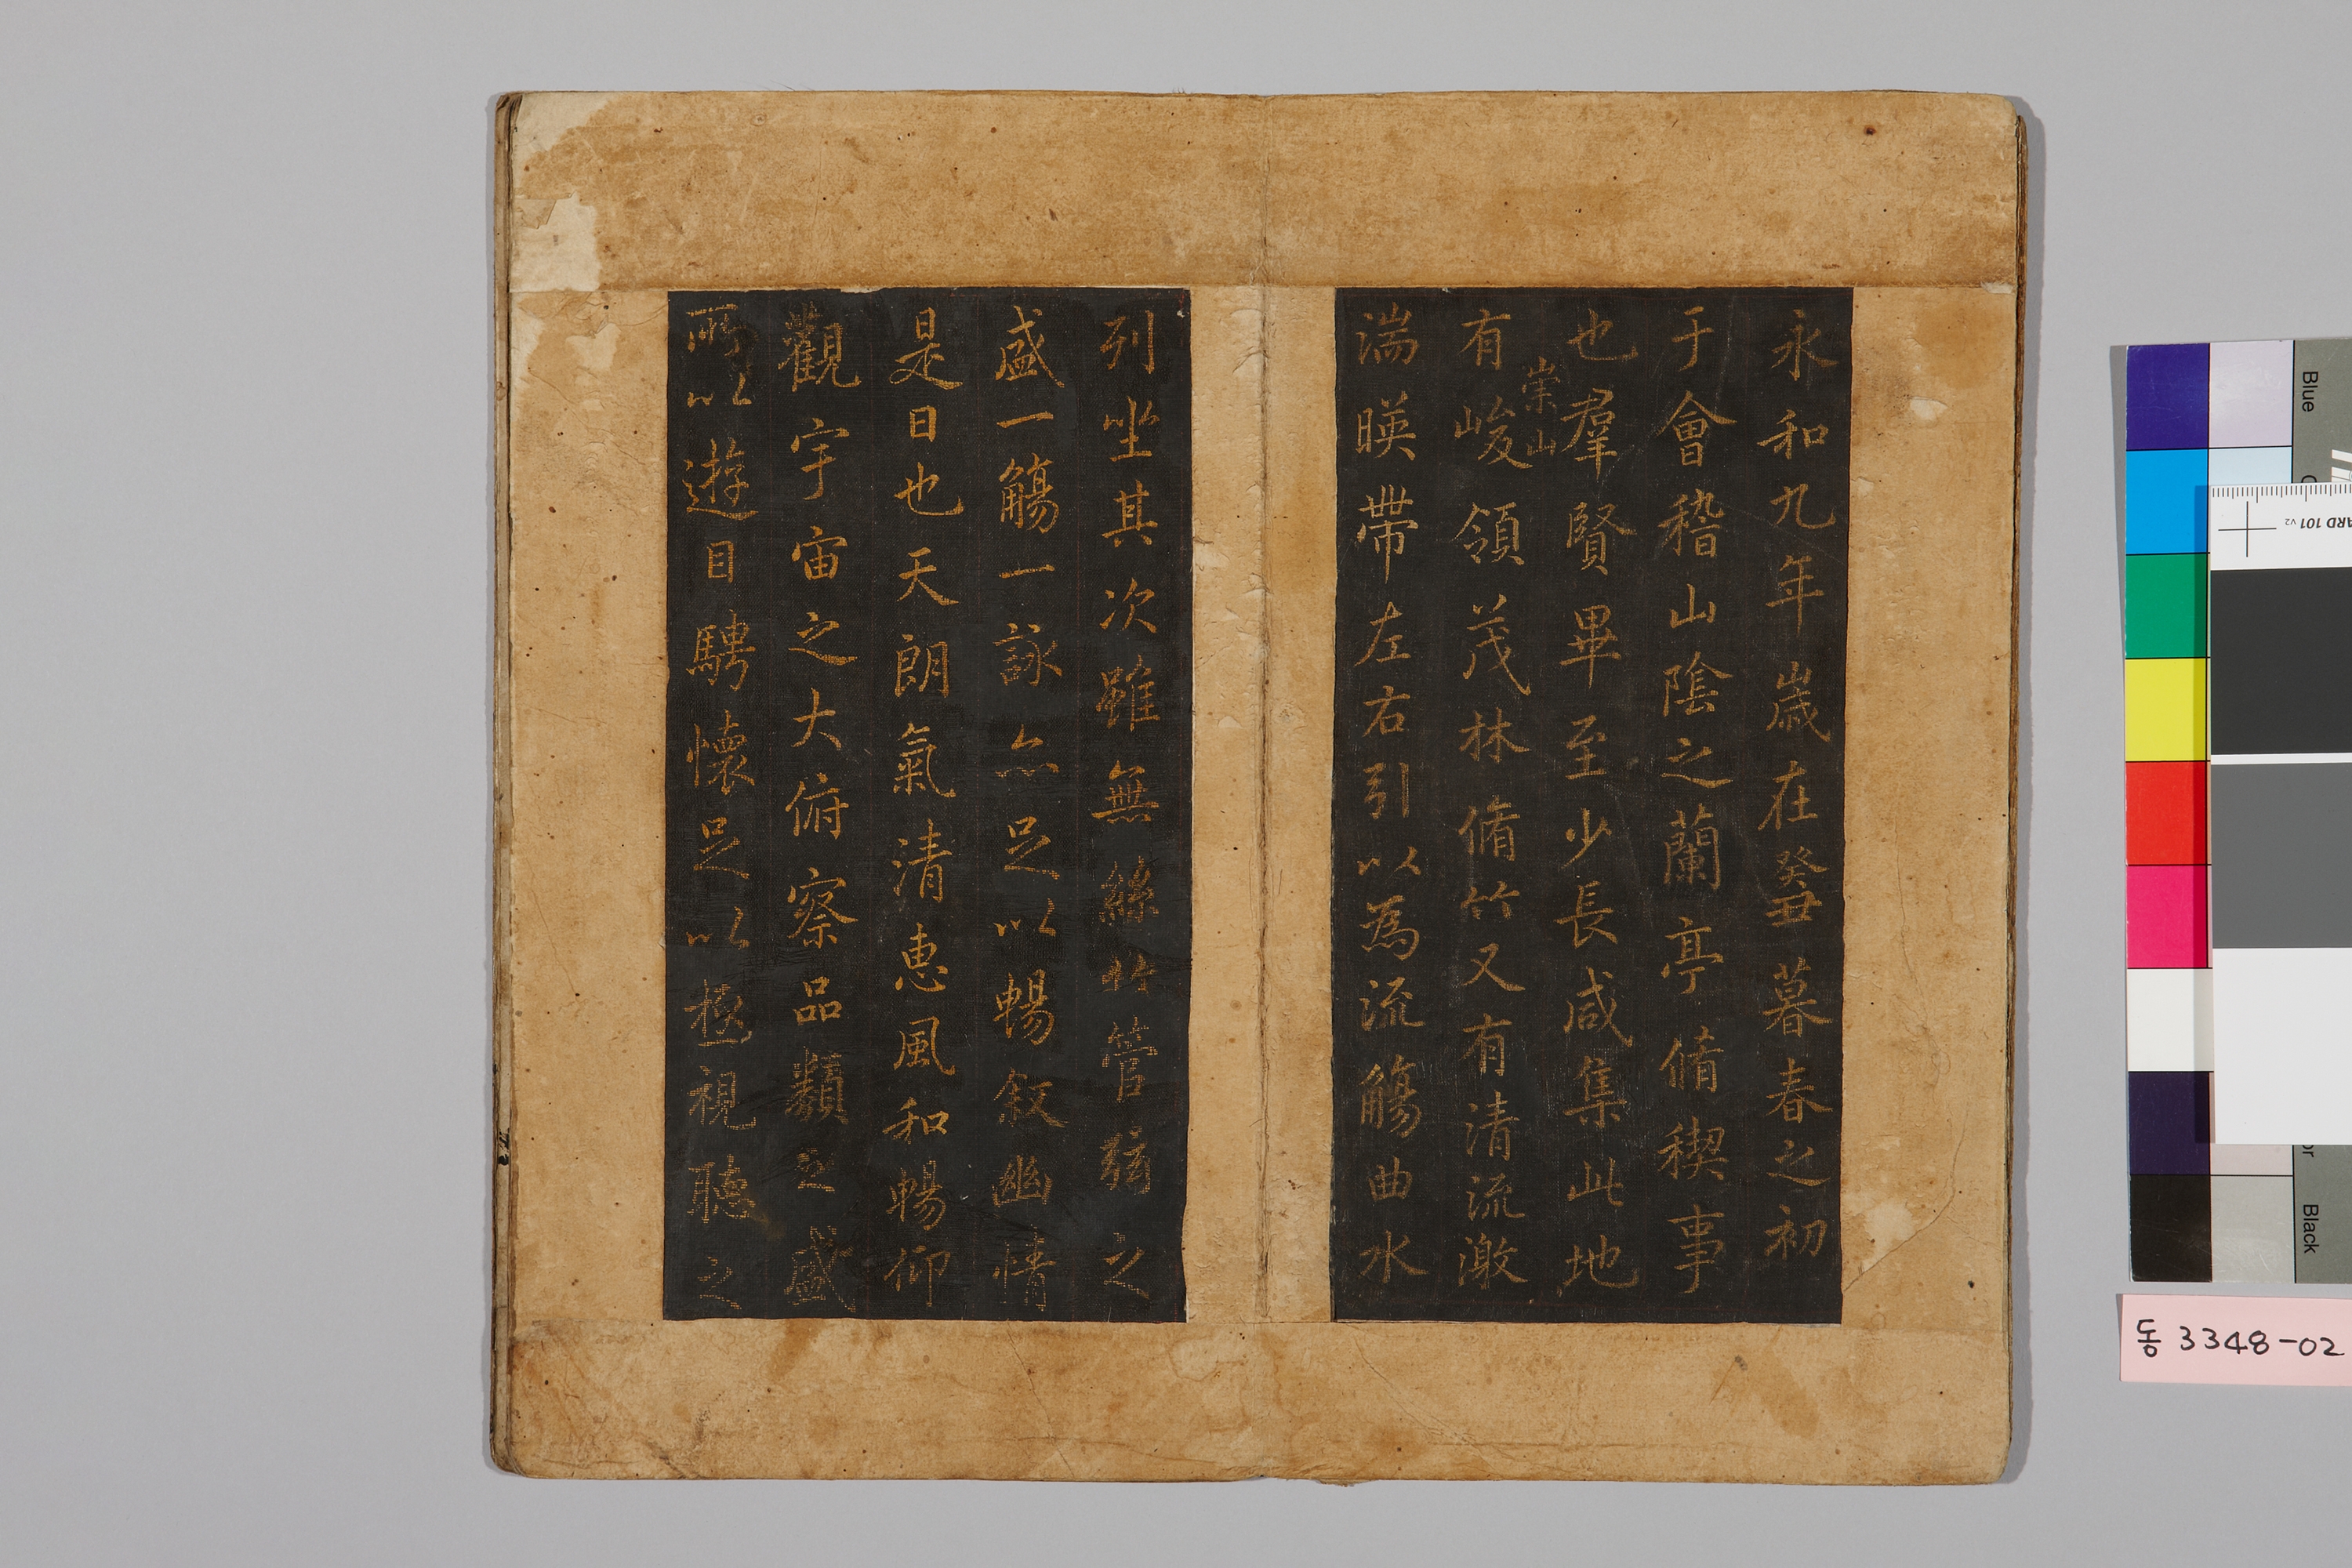 永和九年歲在癸丑暮春之初
于會稽山陰之蘭亭脩稧事
也羣賢畢至少長咸集此地
崇山
有峻領茂林脩竹又有清流激
湍暎帶左右引以為流觴曲水
列坐其次雖無絲竹管弦之
盛一觴一詠亦足以暢叙幽情
是日也天朗氣清惠風和暢仰
觀宇宙之大俯察品類之盛
所以遊目騁懷足以極視聽之
Blue
Black
ARD 101 v2
동 3348-02